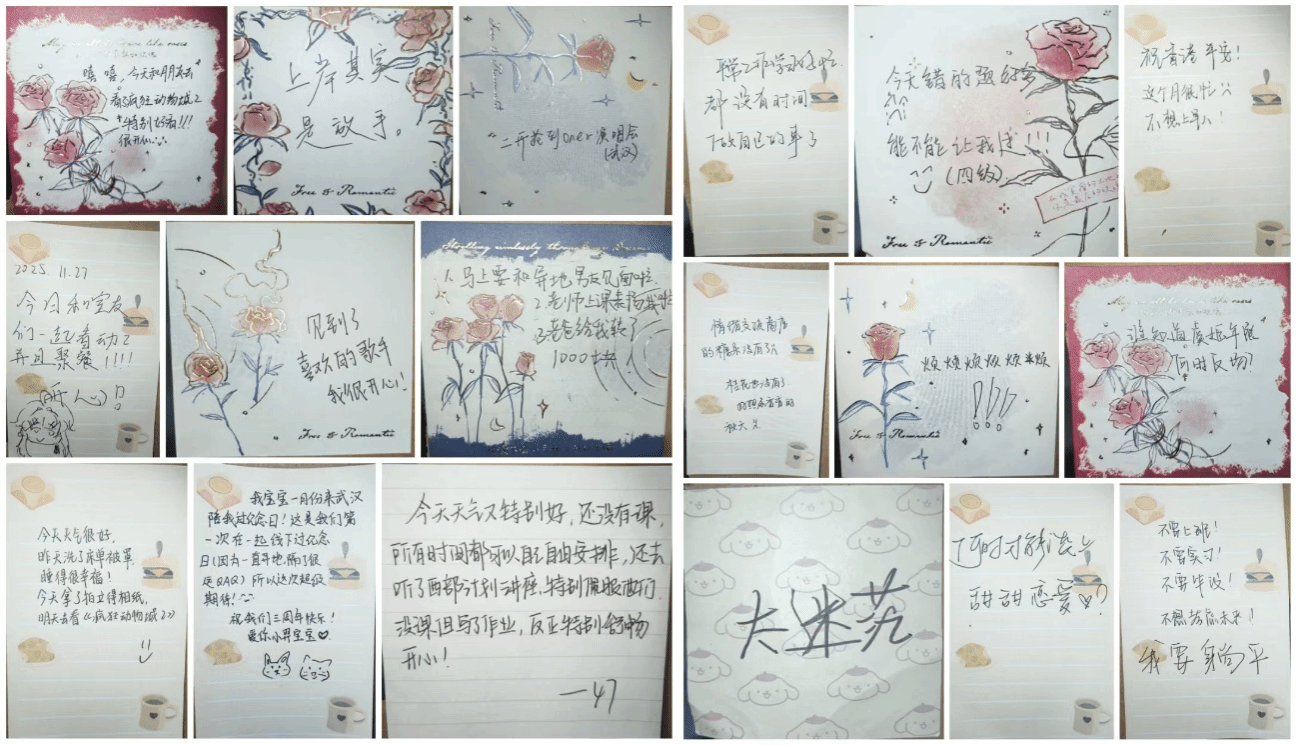 嘻嘻,今天和朋友去
看了疯狂动物城2
特别好看!!!
很开心
上岸其实
是放手。
Free & Romantic
Free & Romantic
二开抢到oner演唱会
(武汉)
2025.11.27
今日和室友
们一起看动2
并且聚餐!!!!
(开心)
见到了
喜欢的歌手
我很开心!
Free & Romantic
Strolling aimlessly through
1、马上要和异地男友见面啦
2 老师上课表扬我啦
3 老爸给我转了
1000块!
今天天气很好,
昨天洗了床单被罩,
睡得很幸福!
今天拿了拍立得相纸,
明天去看《疯狂动物城2》
我宝宝一月份来武汉
陪我过纪念日!这是我们第
一次在一起线下过纪念
日(因为一直异地,隔了很
远QAQ)所以这次超级
期待!
祝我们三周年快乐!
爱你小昇宝宝♡
今天天气又特别好,还没有课,
所有时间都可以自己自由安排,还去
听了西部计划讲座,特别佩服他们.
没课但写了作业,反正特别舒畅
开心!
—47
都没有时间
做自己的事了
今天错的题
能不能让我过!!!
(四级)
Free & Romantic
祝香港平安!
这个月很忙
不想上早八!
情绪交流商店
的糖果没有了
桂花也没有了
烦烦烦烦烦烦
!!!!
Free & Romantic
谁知道
何时反物?
大迷茫
甜甜恋爱♡
不要上班!
不要实习!
不要毕设!
不想考虑未来!!
我要躺平